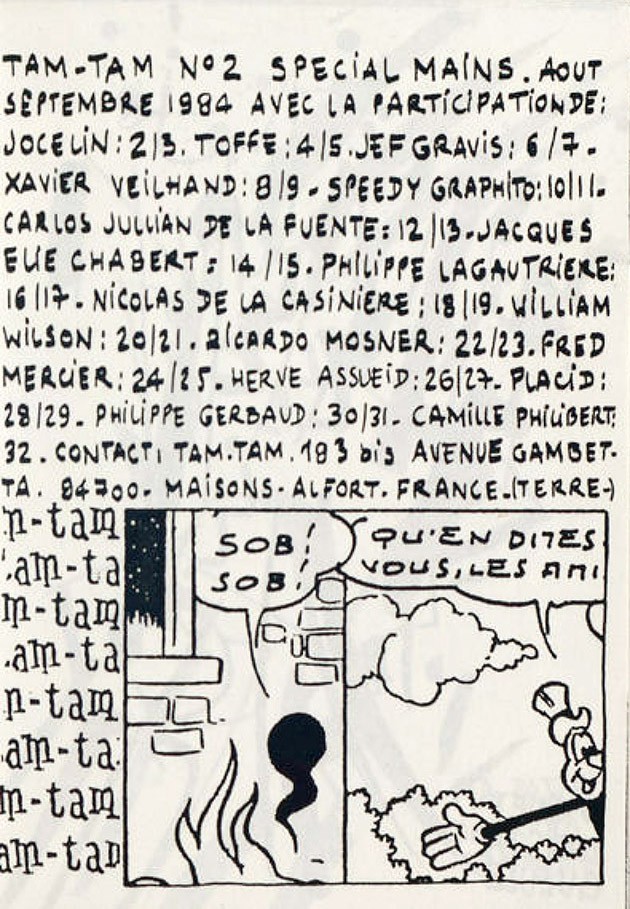 TAM-TAM N°2 SPECIAL MAINS. AOUT
SEPTEMBRE 1984 AVEC LA PARTICIPATION DE:
JOCELIN: 2/3. TOFFE: 4/5. JEF GRAVIS: 6/7.
XAVIER VEILHAND: 8/9. SPEEDY GRAPHITO: 10/11.
CARLOS JULLIAN DE LA FUENTE: 12/13. JACQUES
ELIE CHABERT: 14/15. PHILIPPE LAGAUTRIERE:
16/17. NICOLAS DE LA CASINIERE: 18/19. WILLIAM
WILSON: 20/21. RICARDO MOSNER: 22/23. FRED
MERCIER: 24/25. HERVE ASSUEID: 26/27. PLACID:
28/29. PHILIPPE GERBAUD: 30/31. CAMILLE PHILIBERT:
32. CONTACT: TAM.TAM. 193 bis AVENUE GAMBET-
TA. 94700. MAISONS-ALFORT. FRANCE. (TERRE)
n-tam
.am-ta
m-tam
.am-ta
n-tam
am-ta
m-tam
am-tan
SOB!
SOB!
QU'EN DITES
VOUS, LES AMI